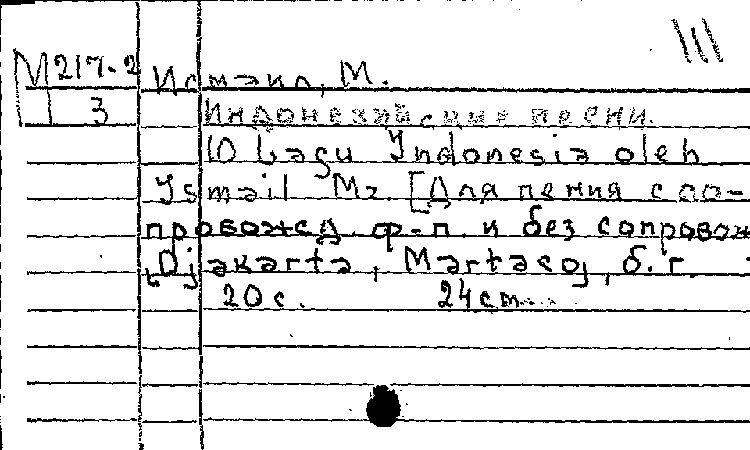 М 217-2 Исмаил, М.
3 Индонезийские песни.
10 Lagu Indonesia oleh
Ismail Mz. [Для пения с со-
провожд. ф-п. и без сопровож
Djakarta, б. г.
20 с. 24 cm.